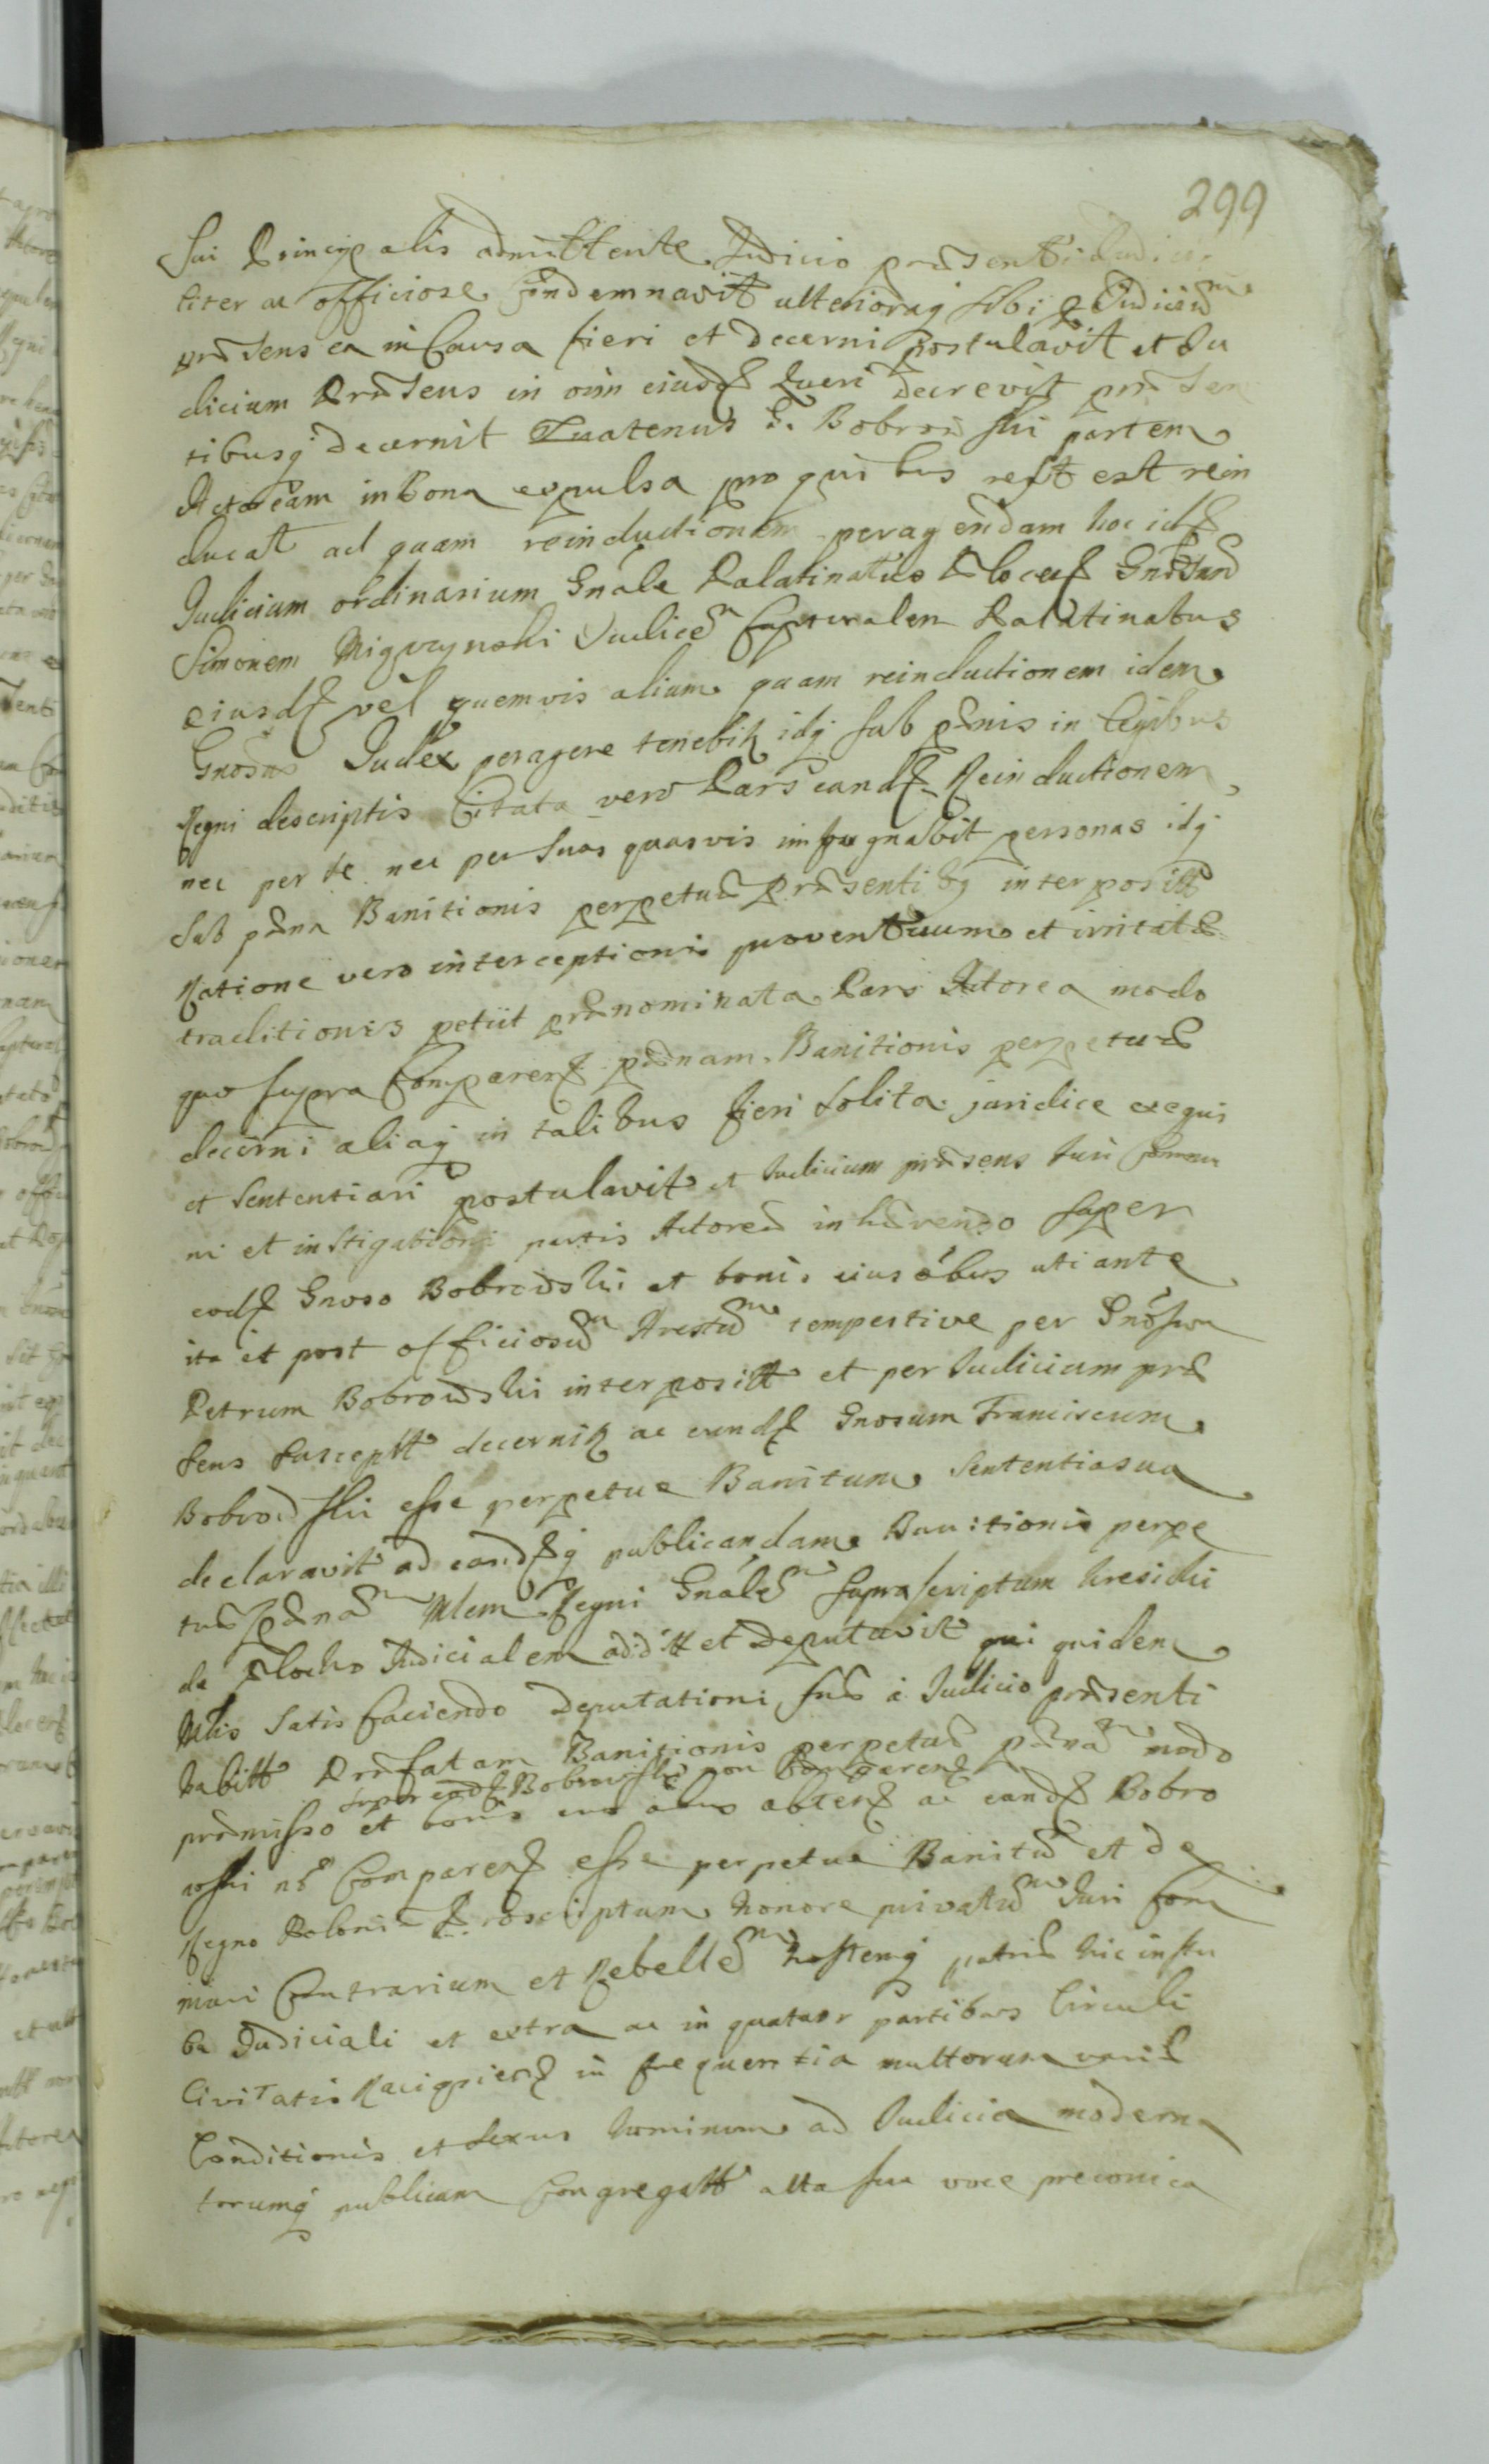 299
Sui Principalis admittente Judicio præsenti Judicia
liter ac officiose Condemnavit ulterioraq sibi p Judiciũ
præsens ea in Causa fieri et decerni postulavit et Ju
dicium Præsens in oim eiusd Lucri decrevit præsen
tibusq decernit Quatenus G. Bobrowski partem
Actoream in bona expulsa pro quibus est rein
ducat ad quam reinductionem peragendam hoc id
Judicium ordinarium Gnale Palatinatus Plocen Gnosum
Simonem Judicẽ Capturalem Palatinatus
eiusd vel quemvis alium quam reinductionem idem
Gnosus Judex peragere tenebit idq sub pænis in legibus
Regni descriptis Citata vero Pars eand Reinductionem
nec per se nec per suas quasvis impugnabit personas idq
sub pæna Banitionis perpetuæ præsentibq interposit
Ratione vero interceptionis proventuum et irritatæ
traditionis petiit prænominata Pars Actorea modo
quo supra Comparen pænam Banitionis perpetuæ
decerni aliaq in talibus fieri solita juridice exequi
et sententiari postulavit et Judicium præsens Juri Commu
ni et instigationi partis Actoreæ inhærendo super
eod Gnoso Bobrowski et bonis eius oibus uti ante
ita et post officiosũ Arestũ tempestive per Gnosum
Petrum Bobrowski interposit et per Judicium præ
sens suscept decernit ac eund Gnosum Franciscum
Bobrowski esse perpetue Banitum sententia sua
declaravit ad eandq publicandam Banitionis perpe
tuæ pænã Mlem Regni Gnalẽ suprascriptum
de Plocko Judicialem addit et deputavit qui quidem
Mlis satisfaciendo deputationi suæ a Judicio præsenti
habitt Præfatam Banitionis perpetuæ pænã modo
super eod Bobrowski non Comparen
præmisso et bonis eius oibus absen ac eund Bobro
wski nõ Comparen esse perpetue Banitũ et de
Regno Poloniæ Proscriptum honore privatũ Juri Com
muni Contrarium et Rebellẽ hostemq patriæ hic in stu
ba Judiciali et extra ac in quatuor partibus Circuli
Civitatis in frequentia multorum variæ
Conditionis et sexus hominum ad Judicia moderna
forumq publicum Congregatt alta sua voce preconica